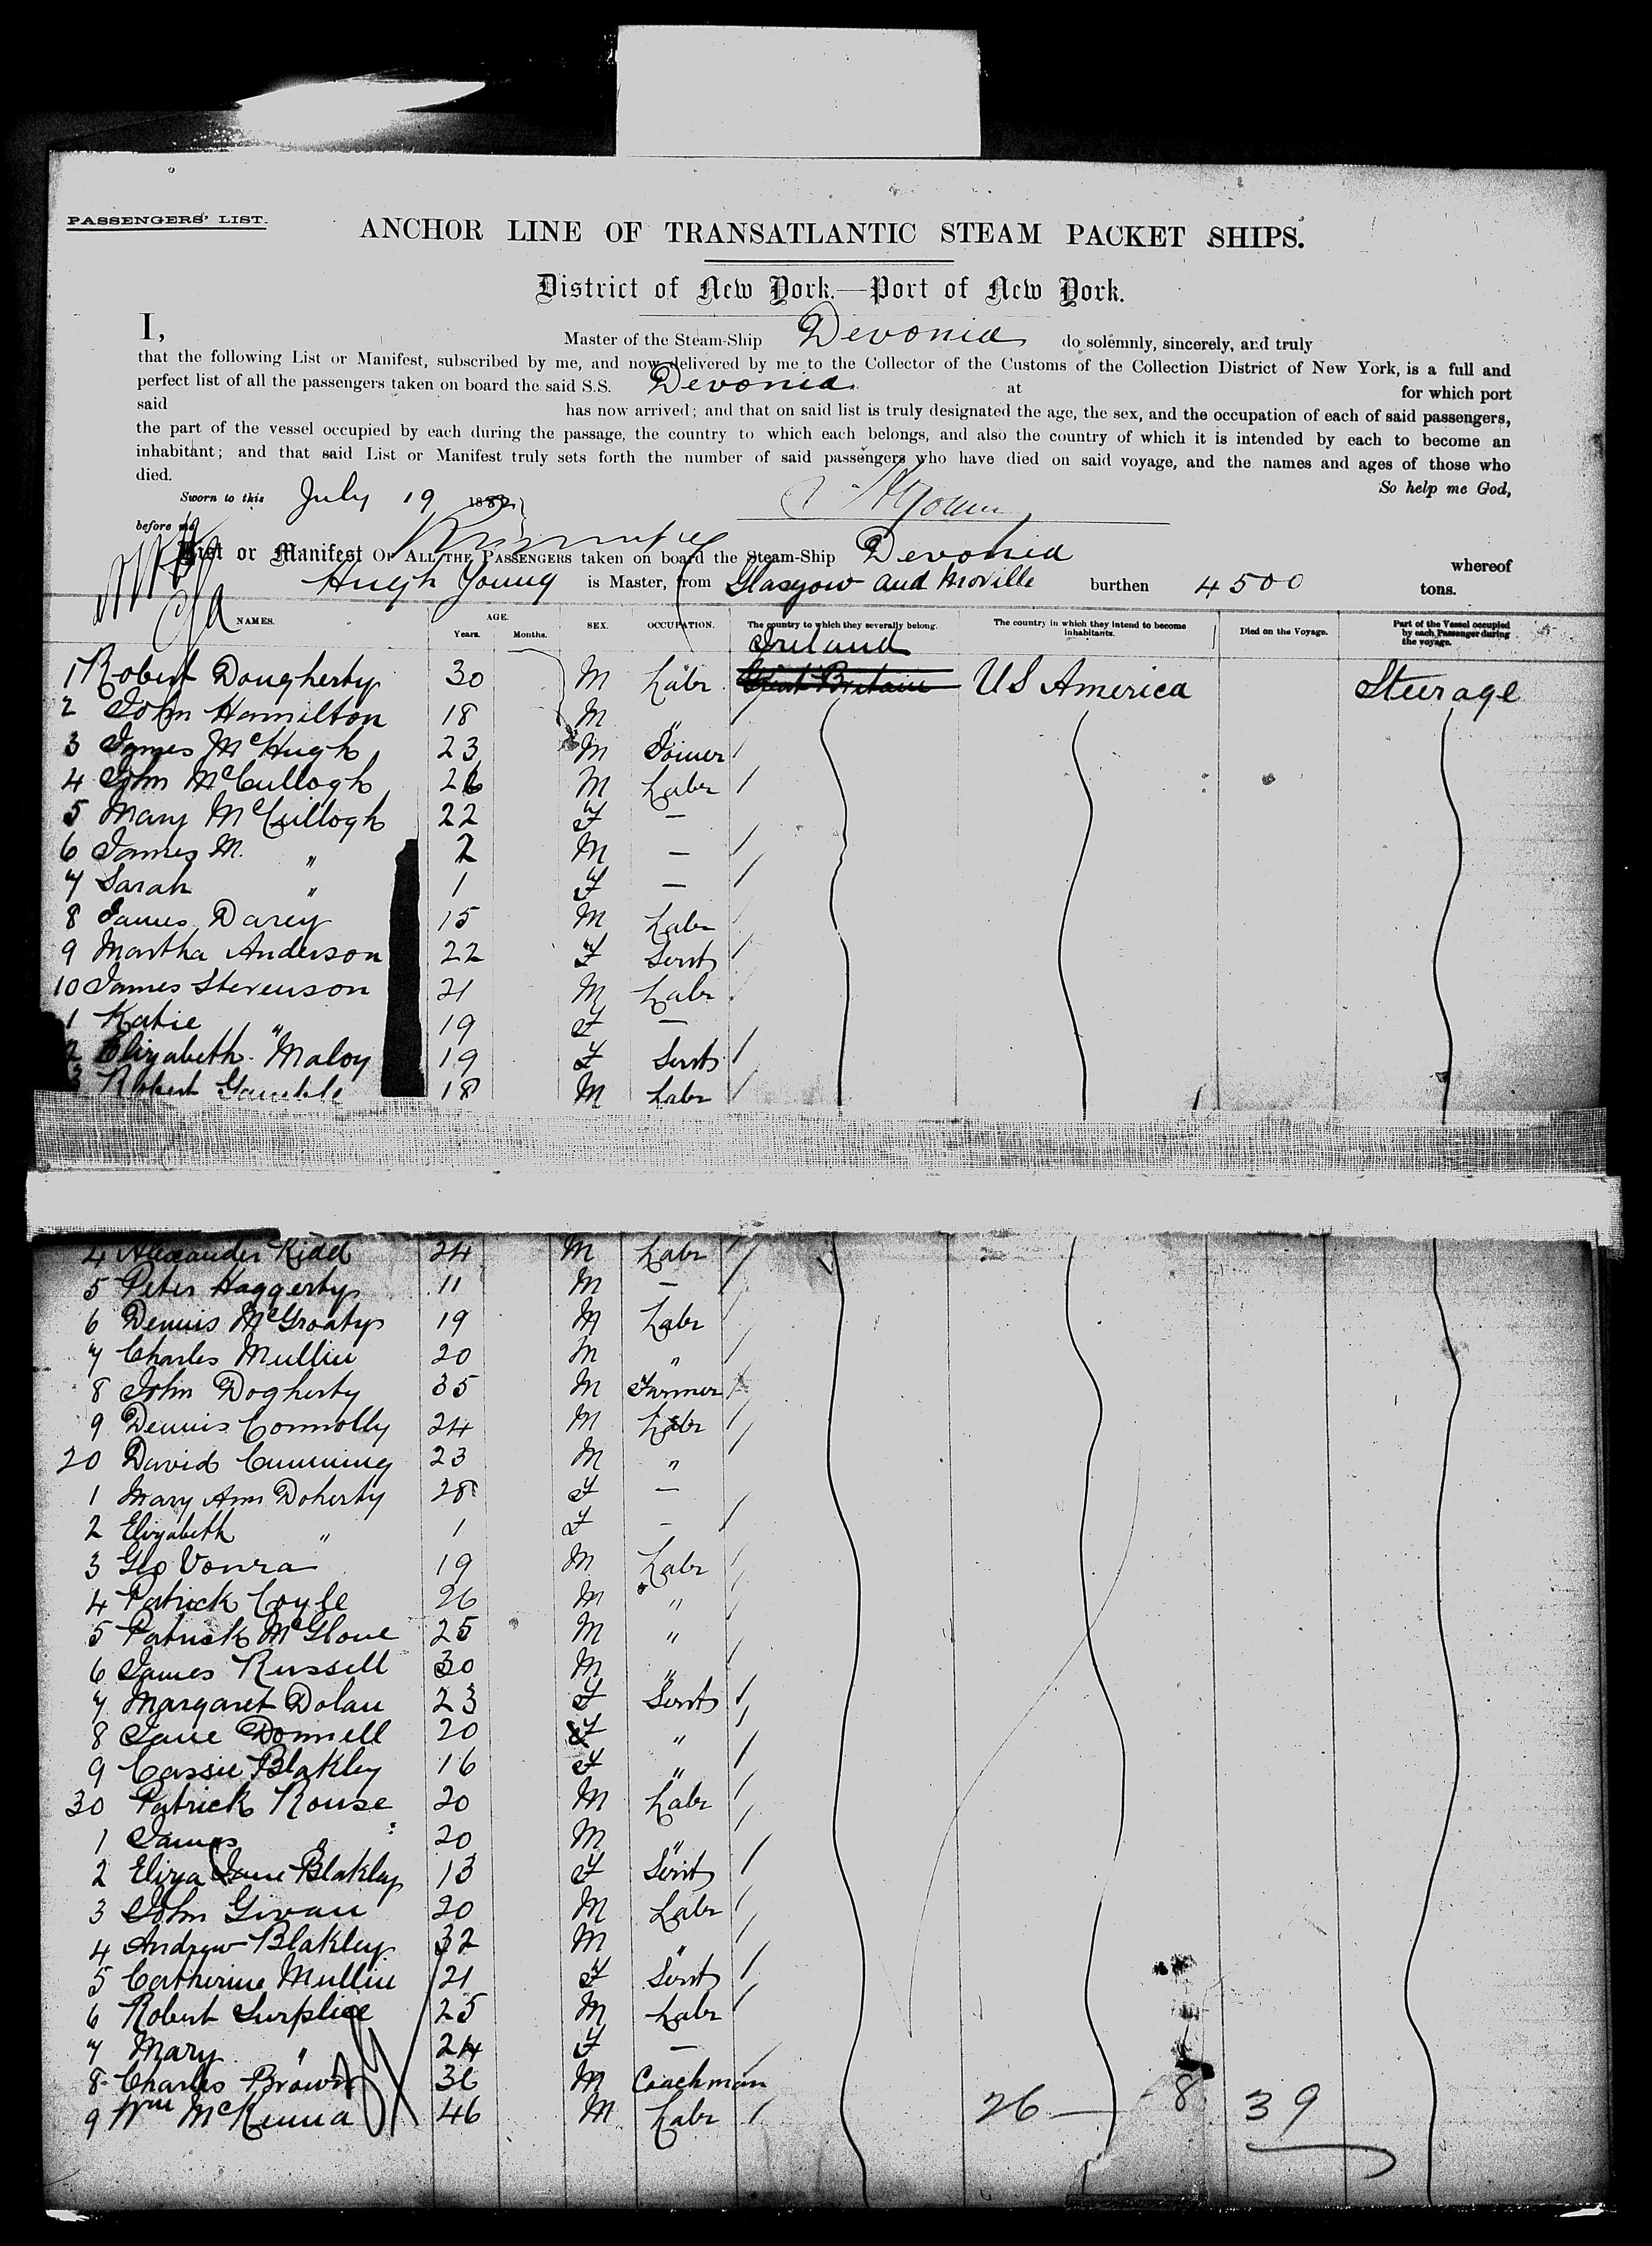 PASSENGERS' LIST.
ANCHOR LINE OF TRANSATLANTIC STEAM PACKET SHIPS.
District of New York.—Port of New York.
I, Master of the Steam-Ship Devonia do solemnly, sincerely, and truly
that the following List or Manifest, subscribed by me, and now delivered by me to the Collector of the Customs of the Collection District of New York, is a full and
perfect list of all the passengers taken on board the said S.S. Devonia at for which port
said has now arrived; and that on said list is truly designated the age, the sex, and the occupation of each of said passengers,
the part of the vessel occupied by each during the passage, the country to which each belongs, and also the country of which it is intended by each to become an
inhabitant; and that said List or Manifest truly sets forth the number of said passengers who have died on said voyage, and the names and ages of those who
died. So help me God,
Sworn to this July 19 188
before me
List or Manifest OF ALL THE PASSENGERS taken on board the Steam-Ship Devonia whereof
Hugh Young is Master, from Glasgow and Moville burthen 4500 tons.
NAMES. AGE. Years. Months. SEX. OCCUPATION. The country to which they severally belong. The country in which they intend to become inhabitants. Died on the Voyage. Part of the Vessel occupied by each Passenger during the voyage.
Ireland
1 Robert Dougherty 30 M Labr Great Britain US America Steerage
2 John Hamilton 18 M "
3 James McHugh 23 M Joiner
4 John McCullogh 26 M Labr
5 Mary McCullogh 22 F —
6 James M. " 2 M —
7 Sarah " 1 F —
8 James Darcy 15 M Labr
9 Martha Anderson 22 F Servt
10 James Stevenson 21 M Labr
1 Katie " 19 F —
2 Elizabeth Maloy 19 F Servt
3 Robert Gamble 18 M Labr
4 Alexander Kidd 24 M Labr
5 Peter Haggerty 11 M —
6 Dennis McGroaty 19 M Labr
7 Charles Mullin 20 M "
8 John Dogherty 35 M Farmer
9 Dennis Connolly 24 M Labr
20 David Cumming 23 M "
1 Mary Ann Doherty 28 F —
2 Elizabeth " 1 F -
3 Geo 19 M Labr
4 Patrick Coyle 26 M "
5 Patrick McGlone 25 M "
6 James Russell 30 M "
7 Margaret Dolan 23 F Servt
8 Jane Donnell 20 F "
9 Cassie Blakley 16 F "
30 Patrick Rouse 20 M Labr
1 James " 20 M "
2 Eliza Jane Blakley 13 F Servt
3 John Givan 20 M Labr
4 Andrew Blakley 32 M "
5 Catherine Mullin 21 F Servt
6 Robert Surplice 25 M Labr
7 Mary " 24 F —
8 Charles Brown 36 M Coachman
9 Wm McKenna 46 M Labr
26 — 8 39